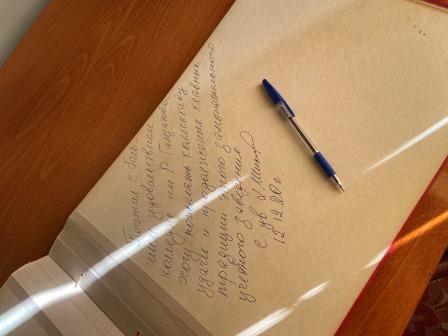 Посетил с боль-
шим удовольствием
колледж им Р. Гамзатова
хочу пожелать коллективу
удачи и продолжения славных
традиций этого замечательного
учебного заведения
с ув
12.12.20 г.